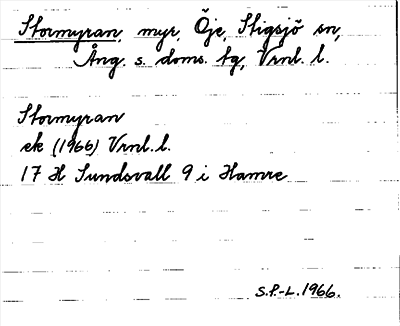 Stormyran, myr, Öje, Stigsjö sn,
Ång. s. doms. tg, Vrnl. l.
Stormyran
ek (1966) Vrnl. l.
17 H Sundsvall 9 i Hamre
S.P.-L. 1966.